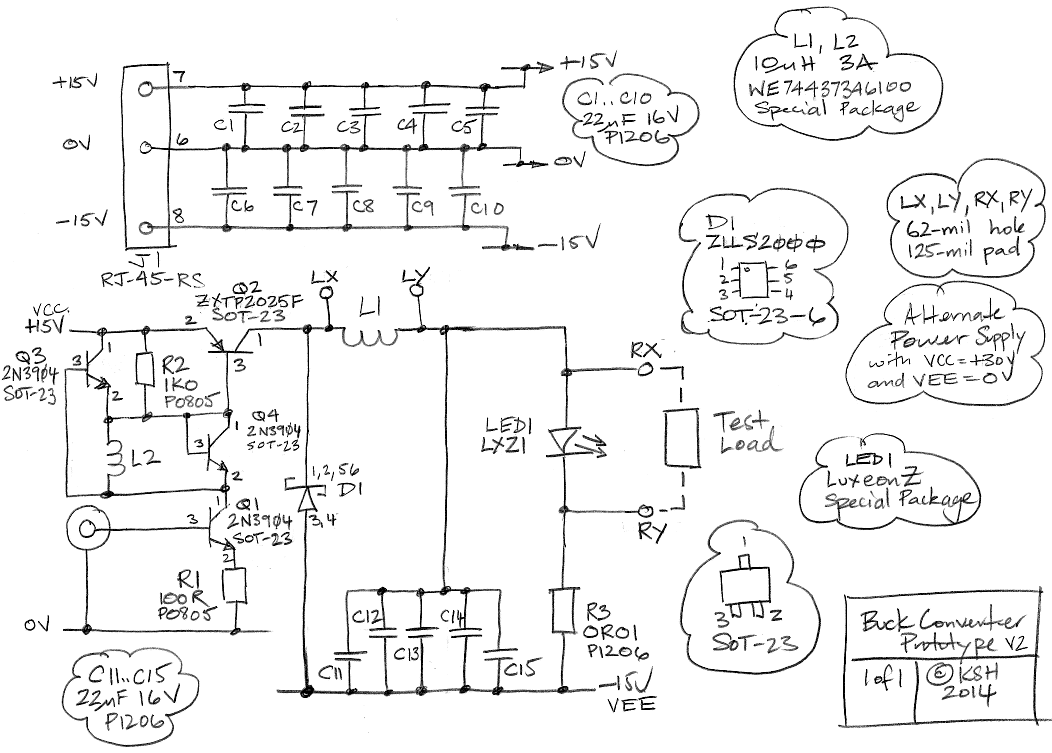 +15V
7
+15V
C1
C2
C3
C4
C5
0V
6
0V
C6
C7
C8
C9
C10
-15V
8
-15V
J1
RJ-45-RS
C1..C10
22µF 16V
P1206
L1, L2
10uH 3A
WE74437346100
Special Package
D1
ZLLS2000
1
2
3
6
5
4
SOT-23-6
LX, LY, RX, RY
62-mil hole
125-mil pad
Alternate
Power Supply
with VCC=+30V
and VEE=0V
VCC
+15V
Q2
ZXTP2025F
SOT-23
2
1
3
LX
LY
L1
Q3
2N3904
SOT-23
3
1
2
R2
1K0
P0805
Q4
2N3904
SOT-23
1
3
2
L2
Q1
2N3904
SOT-23
1
3
2
R1
100R
P0805
0V
1,2,56
D1
3,4
LED1
LXZ1
RX
Test
Load
RY
LED1
LuxeonZ
Special Package
C11
C12
C13
C14
C15
R3
0R01
P1206
-15V
VEE
C11..C15
22µF 16V
P1206
1
3
2
SOT-23
Buck Converter
Prototype V2
1 of 1
© KSH
2014